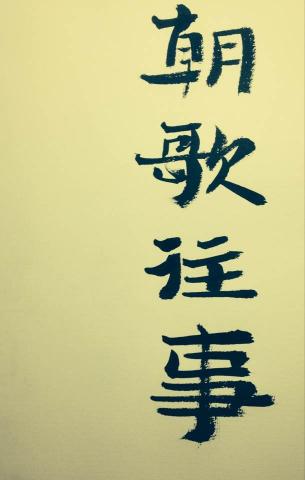 朝歌往事